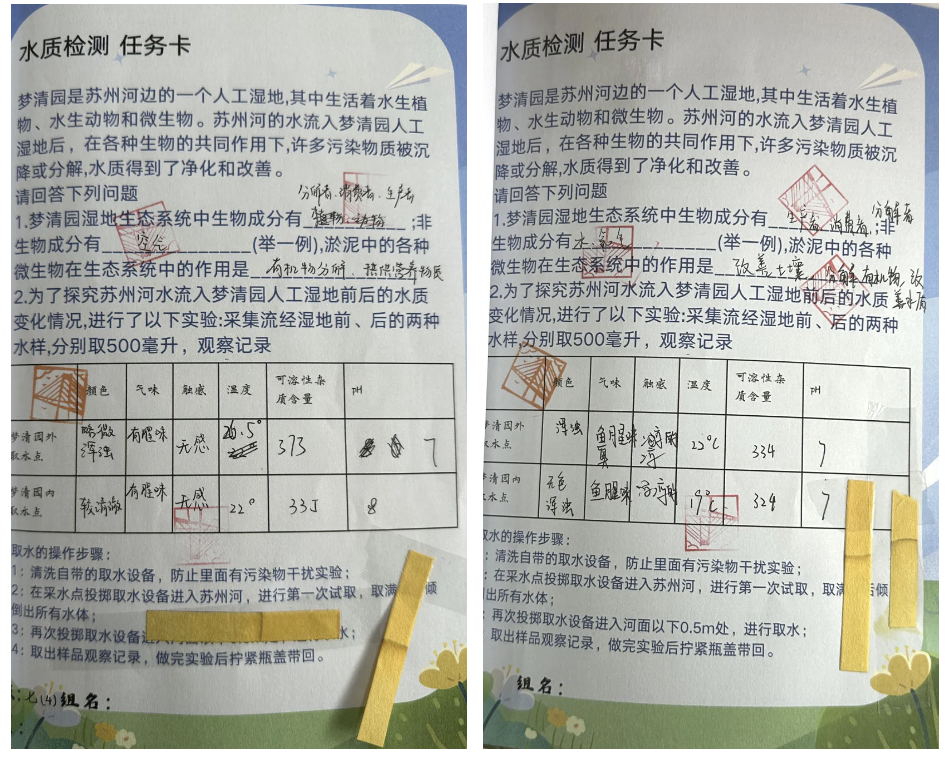 水质检测 任务卡
梦清园是苏州河边的一个人工湿地,其中生活着水生植
物、水生动物和微生物。苏州河的水流入梦清园人工
湿地后，在各种生物的共同作用下,许多污染物质被沉
降或分解,水质得到了净化和改善。
请回答下列问题
分解者、消费者、生产者
1.梦清园湿地生态系统中生物成分有 植物、动物 ;非
生物成分有 空气 (举一例),淤泥中的各种
微生物在生态系统中的作用是 有机物分解、提供营养物质
2.为了探究苏州河水流入梦清园人工湿地前后的水质
变化情况,进行了以下实验:采集流经湿地前、后的两种
水样,分别取500毫升，观察记录
颜色 气味 触感 温度 可溶性杂质含量 pH
梦清园外取水点 略微浑浊 有腥味 无感 26.5° 373 7
梦清园内取水点 较清澈 有腥味 无感 22° 335 8
取水的操作步骤：
1：清洗自带的取水设备，防止里面有污染物干扰实验；
2：在采水点投掷取水设备进入苏州河，进行第一次试取，取满 倾
倒出所有水体；
3：再次投掷取水设备进 水；
4：取出样品观察记录，做完实验后拧紧瓶盖带回。
：七(4) 组名：
水质检测 任务卡
梦清园是苏州河边的一个人工湿地,其中生活着水生植
物、水生动物和微生物。苏州河的水流入梦清园人工
湿地后，在各种生物的共同作用下,许多污染物质被沉
降或分解,水质得到了净化和改善。
请回答下列问题
1.梦清园湿地生态系统中生物成分有 生产者、消费者、分解者 ;非
生物成分有 水、氧气 (举一例),淤泥中的各种
微生物在生态系统中的作用是 改善土壤 分解有机物,改善水质
2.为了探究苏州河水流入梦清园人工湿地前后的水质
变化情况,进行了以下实验:采集流经湿地前、后的两种
水样,分别取500毫升，观察记录
颜色 气味 触感 温度 可溶性杂质含量 pH
梦清园外取水点 浑浊 鱼腥味 22℃ 334 7
梦清园内取水点 无色浑浊 鱼腥味 19℃ 324 7
取水的操作步骤：
：清洗自带的取水设备，防止里面有污染物干扰实验；
：在采水点投掷取水设备进入苏州河，进行第一次试取，取满 后倾
出所有水体；
再次投掷取水设备进入河面以下0.5m处，进行取水；
取出样品观察记录，做完实验后拧紧瓶盖带回。
组名：